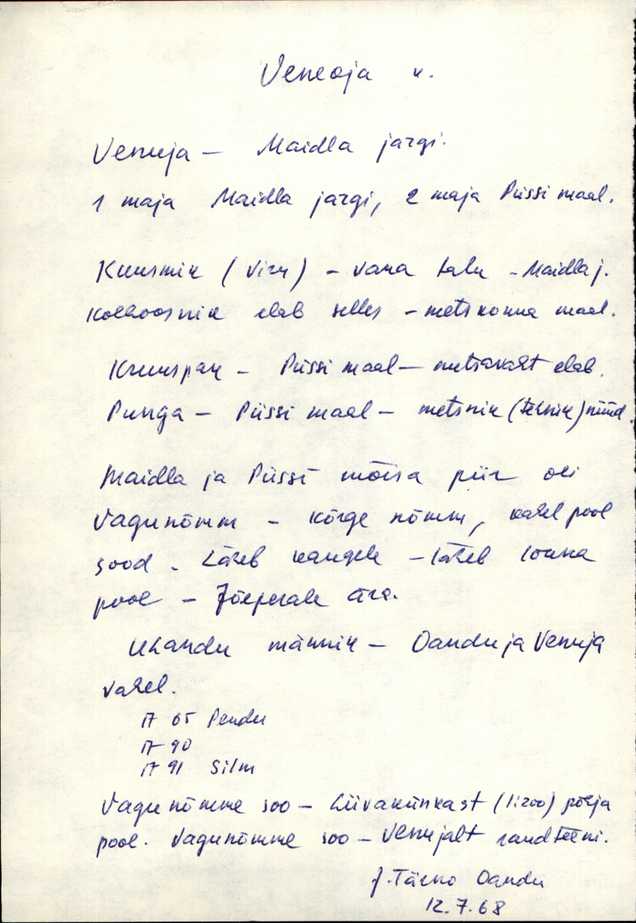 Veneoja k.
Venuja — Maidla järgi.
1 maja Maidla järgi, 2 maja Püssi maal.
Kuusmik (Viru) – vana talu – Maidla j.
Kolhoosnik elab selles – metskonna maal.
Kruuspak – Püssi maal — metsavaht elab.
Punga — Püssi maal — metsnik (tehnik) nüüd.
Maidla ja Püssi mõisa piir oli
Vagunõmm – kõrge nõmm, kahel pool
sood. Läheb kaugele – läheb lõuna
pool – Jõeperale ära.
Uhandu männik — Oandu ja Venuja
vahel.
17 65 Pendu
17 90
17 91 Silm
Vagunõmme soo — Liivakünkast põhja
pool. Vagunõmme soo — Venujalt raudteeni.
J. Tärno Oandu
12.7.68